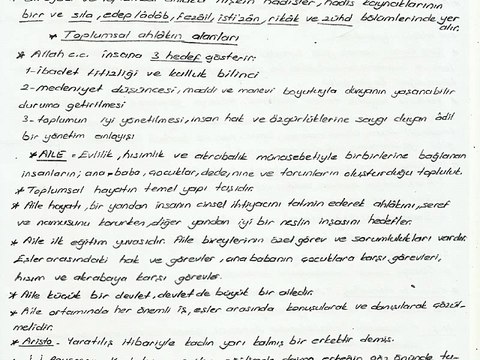 hadisler, hadis kaynaklarının
bir ve sıla, edep/âdâb, fezâil, isti'zân, rikâk ve zühd bölümlerinde yer
alır.
* Toplumsal ahlâkın alanları
* Allah c.c. insana 3 hedef gösterir:
1-ibadet titizliği ve kulluk bilinci
2-medeniyet düşüncesi, maddi ve manevi boyutuyla dünyanın yaşanabilir
duruma getirilmesi
3-toplumun iyi yönetilmesi, insan hak ve özgürlüklerine saygı duyan âdil
bir yönetim anlayışı
* AİLE = Evlilik, hısımlık ve akrabalık münasebetiyle birbirlerine bağlanan
insanların; ana-baba, çocuklar, dede, nine ve torunların oluşturduğu topluluk.
* Toplumsal hayatın temel yapı taşıdır.
* Aile hayatı, bir yandan insanın cinsel ihtiyacını tatmin ederek ahlâkını, şeref
ve namusunu korurken, diğer yandan iyi bir neslin inşasını hedefler.
* Aile ilk eğitim yuvasıdır. Aile bireylerinin özel görev ve sorumlulukları vardır.
Eşler arasındaki hak ve görevler, ana babanın çocuklara karşı görevleri,
hısım ve akrabaya karşı görevler.
* Aile küçük bir devlet, devlet de büyük bir ailedir.
* Aile ortamında her önemli iş, eşler arasında konuşularak ve danışılarak çözül-
melidir.
* Aristo - Yaratılış itibariyle kadın yarı kalmış bir erkektir demiş.